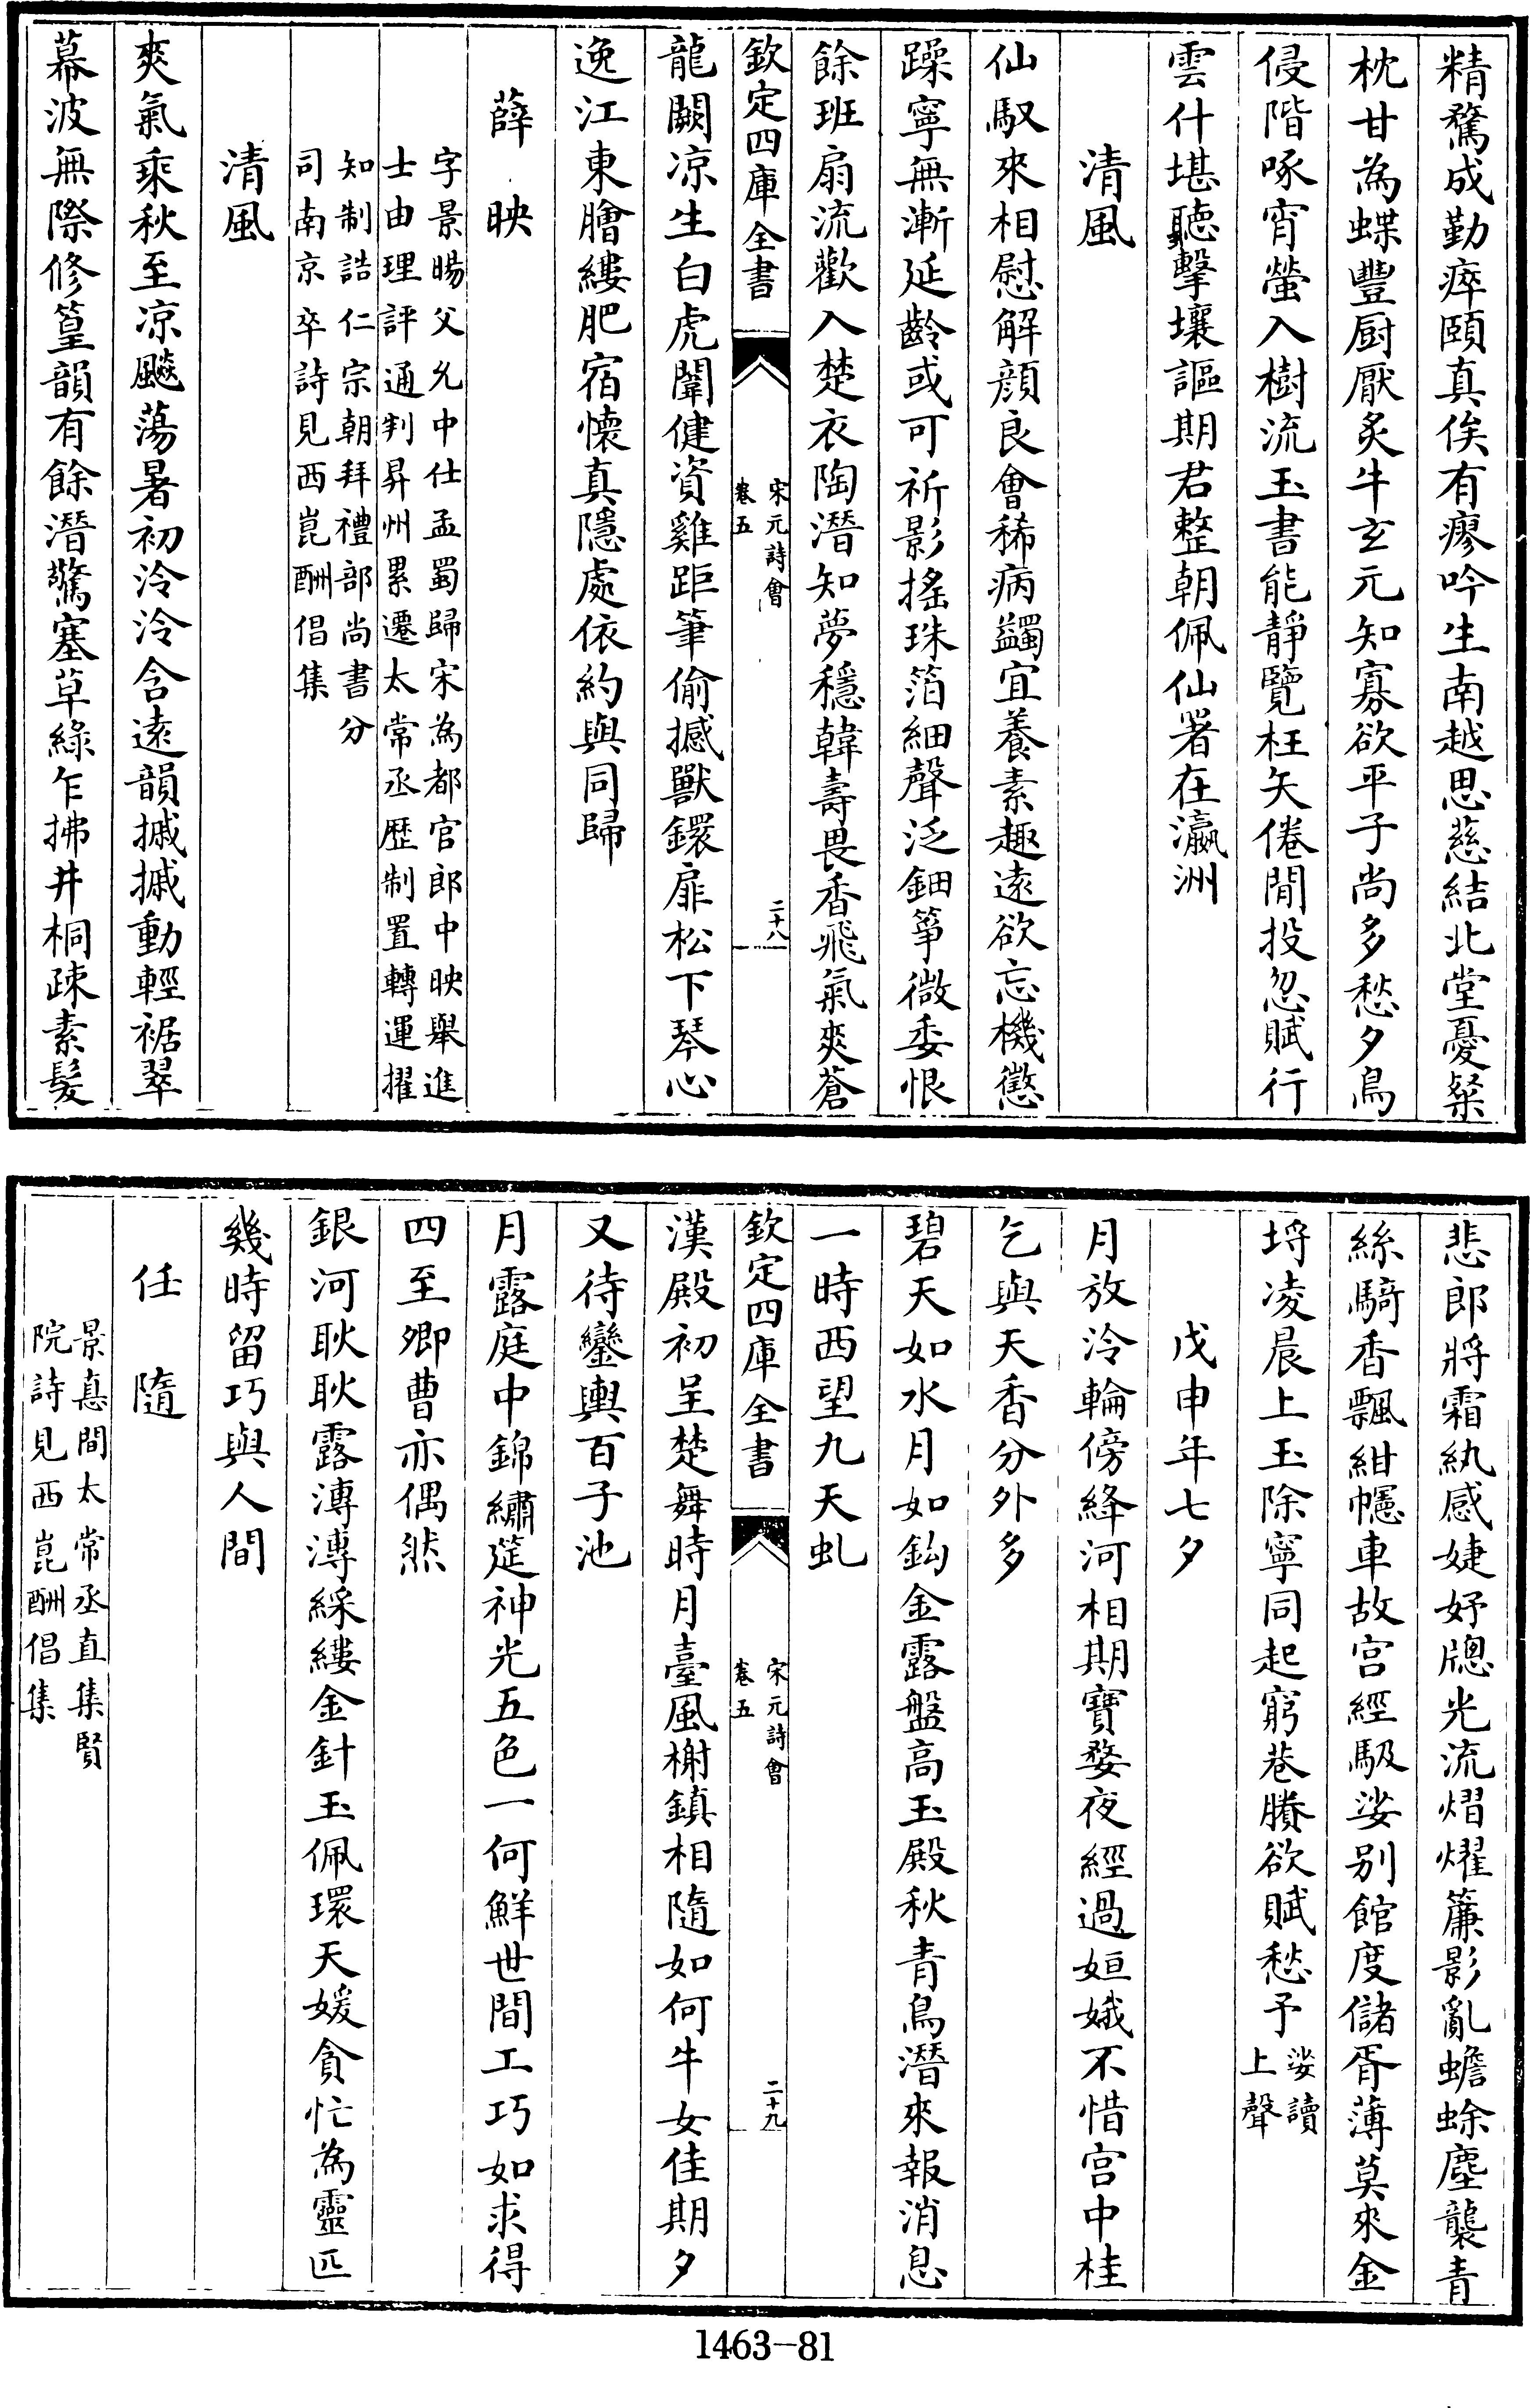 精騖成勤瘁頤真俟有瘳吟生南越思慈結北堂憂粲
枕甘為蝶豐厨厭炙牛玄元知寡欲平子尚多愁夕鳥
侵階啄宵螢入樹流玉書能靜覽枉矢倦閒投忽賦行
雲什堪聽擊壤謳期君整朝佩仙署在瀛洲
清風
仙馭來相慰解顔良會稀病蠲宜養素趣遠欲忘機懲
躁寧無漸延齡或可祈影搖珠箔細聲泛鈿箏微委恨
餘班扇流歡入楚衣陶潛知夢穩韓壽畏香飛氣爽蒼
欽定四庫全書
宋元詩會
卷五
二十八
龍闕凉生白虎闈健資雞距筆偷撼獸鐶扉松下琴心
逸江東膾縷肥宿懐真隱處依約與同歸
薛映
字景暘父允中仕孟蜀歸宋為都官郎中映舉進
士由理評通判昇州累遷太常丞歴制置轉運擢
知制誥仁宗朝拜禮部尚書分
司南京卒詩見西崑酬倡集
清風
爽氣乘秋至凉飈蕩暑初泠泠含遠韻摵摵動輕裾翠
幕波無際修篁韻有餘潛驚塞草綠乍拂井桐疎素髪
悲郎將霜紈感婕妤牕光流熠燿簾影亂蟾蜍塵襲青
絲騎香飄紺幰車故宫經馺娑别館度儲胥薄莫來金
埒凌晨上玉除寧同起窮巷賸欲賦愁予
娑讀
上聲
戊申年七夕
月放泠輪傍絳河相期寶婺夜經過姮娥不惜宫中桂
乞與天香分外多
碧天如水月如鈎金露盤高玉殿秋青鳥潛來報消息
一時西望九天虬
欽定四庫全書
宋元詩會
卷五
二十九
漢殿初呈楚舞時月臺風榭鎮相隨如何牛女佳期夕
又待鑾輿百子池
月露庭中錦繡筵神光五色一何鮮世間工巧如求得
四至卿曹亦偶然
銀河耿耿露漙漙綵縷金針玉佩環天媛貪忙為靈匹
幾時留巧與人間
任隨
景真間太常丞直集賢
院詩見西崑酬倡集
1463-81